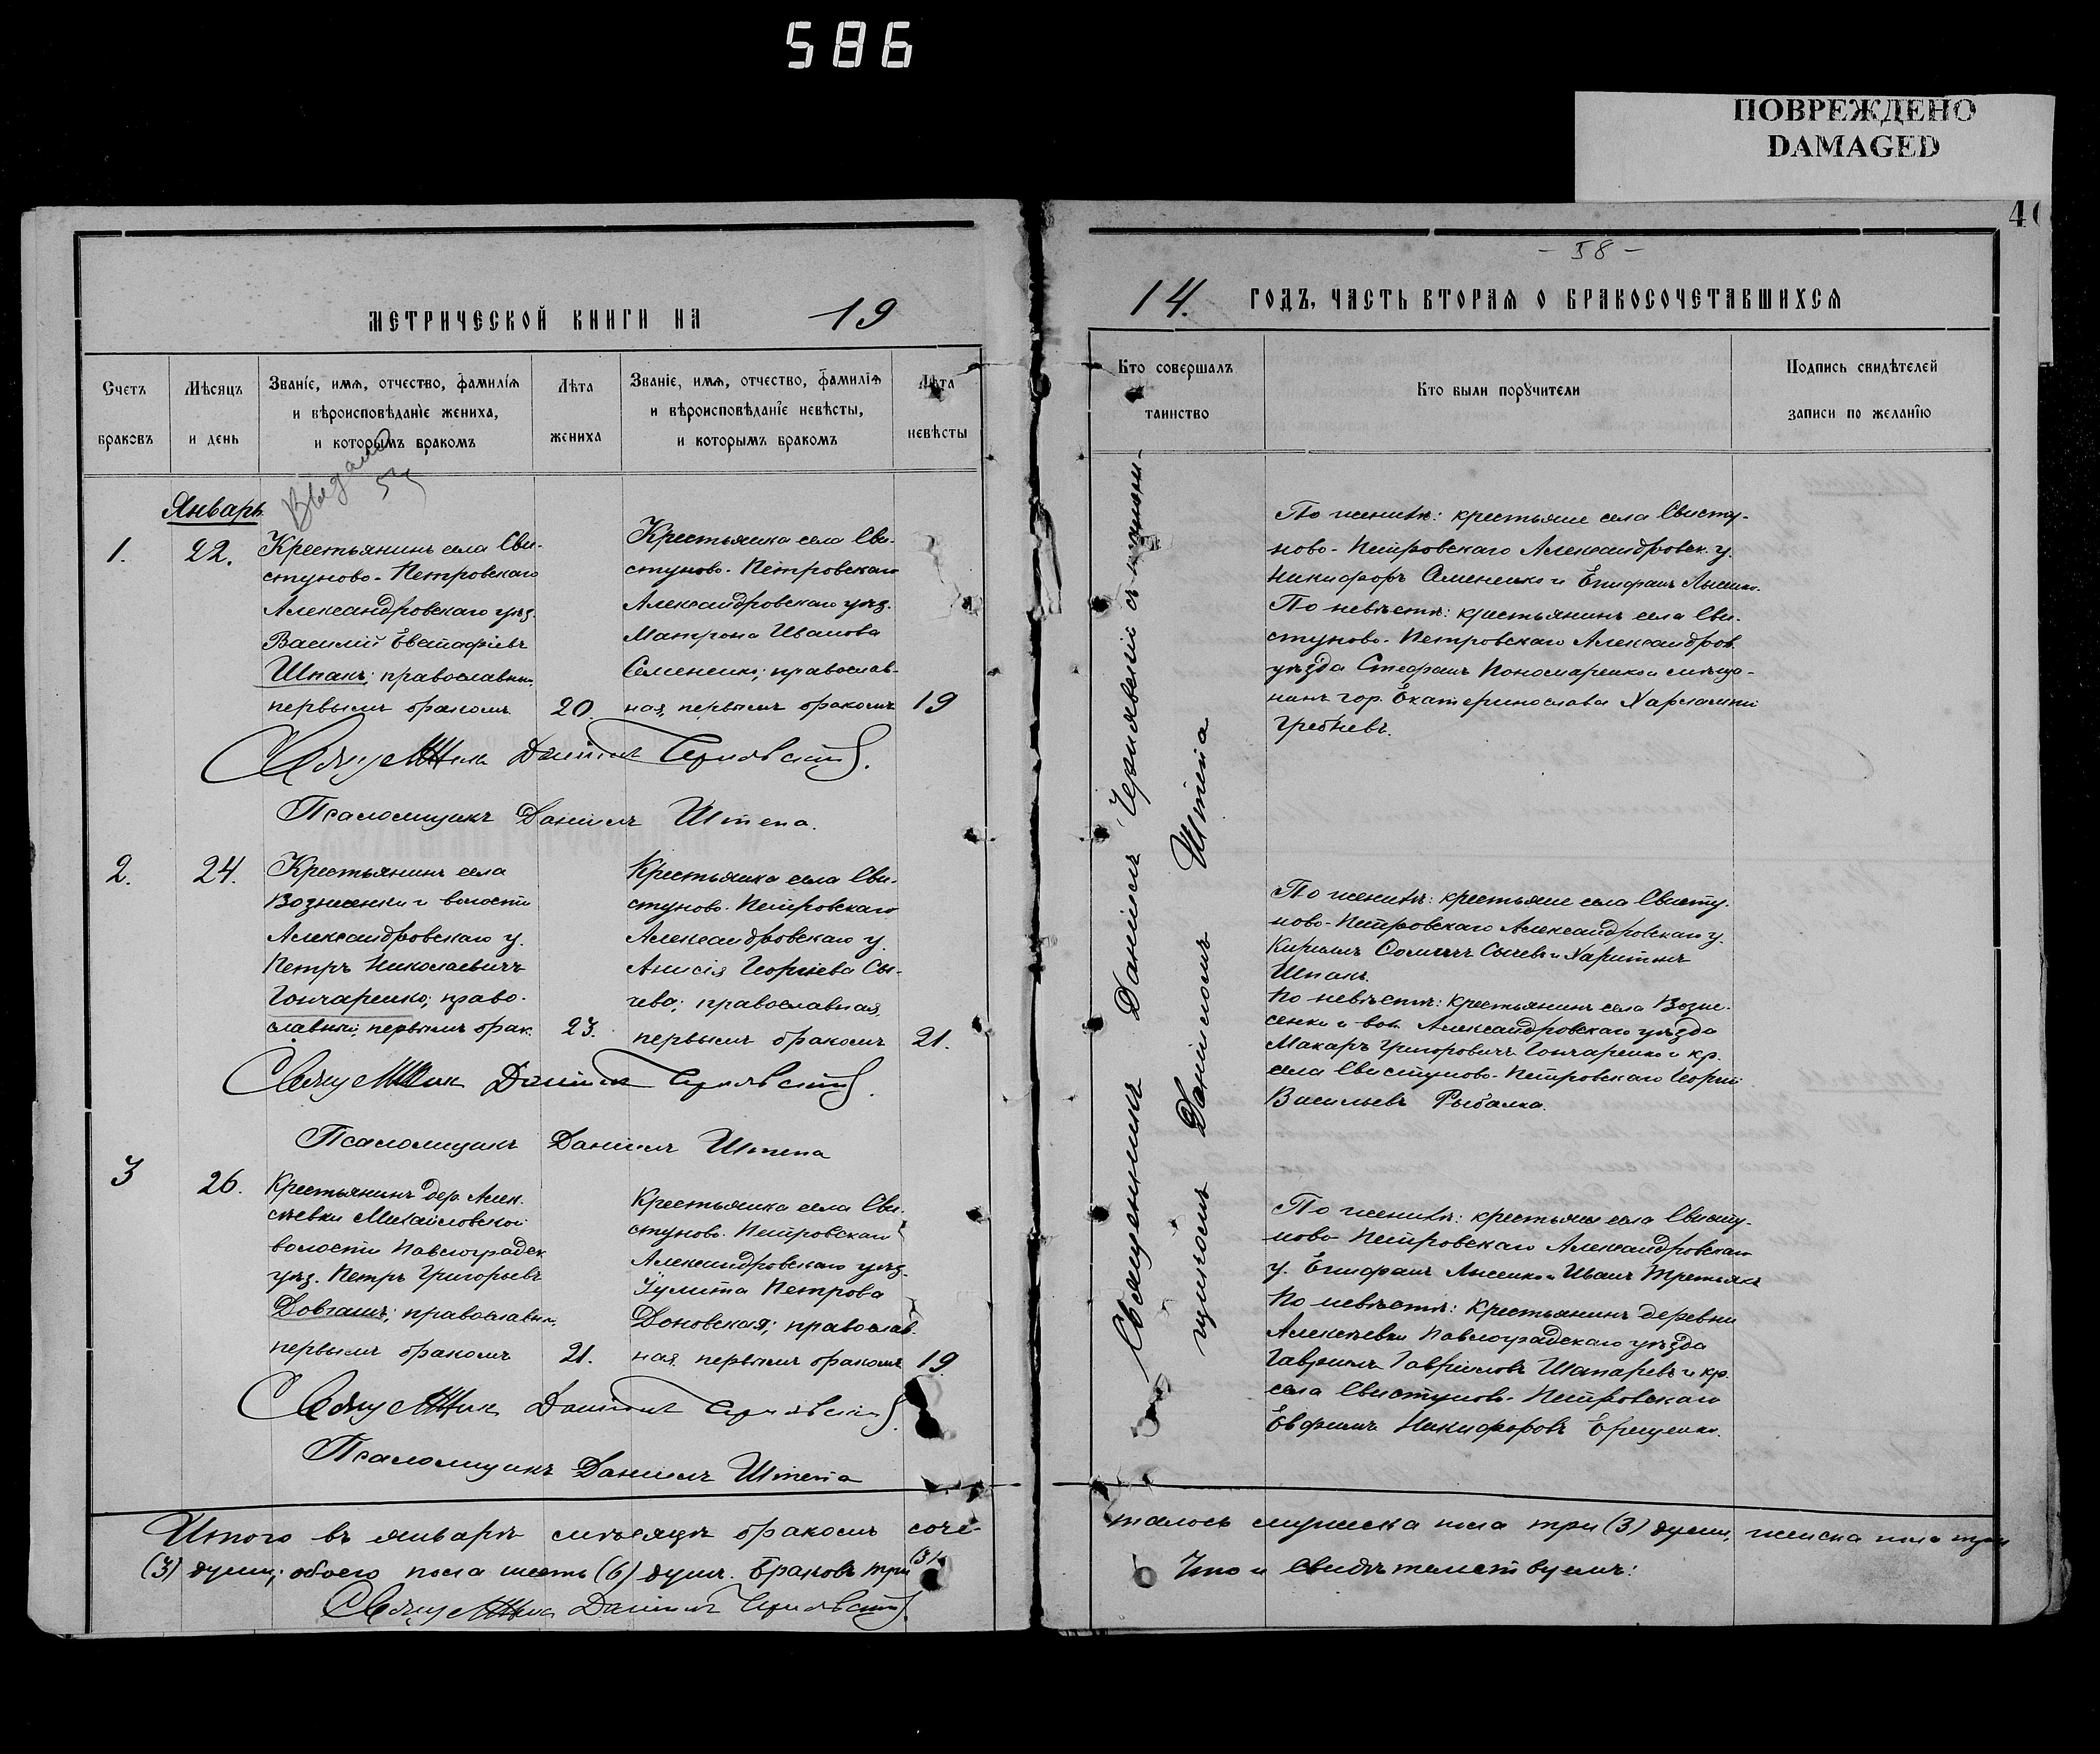 586
ПОВРЕЖДЕНО
DAMAGED
40
МЕТРИЧЕСКОЙ КНИГИ НА 19
Счетъ браковъ
Мѣсяцъ и день
Званіе, имя, отчество, фамилія
и вѣроисповѣданіе жениха,
и которымъ бракомъ
Лѣта жениха
Званіе, имя, отчество, фамилія
и вѣроисповѣданіе невѣсты,
и которымъ бракомъ
Лѣта невѣсты
Январь
1.
22.
Крестьянинъ села Сви-
стуново-Петровскаго
Александровскаго уѣз.
Василій Евстафіевъ
Шпакъ; православный,
первымъ бракомъ
20.
Крестьянка села Сви-
стуново-Петровскаго
Александровскаго уѣз.
Матрона Иванова
Семененко; православ-
ная, первымъ бракомъ
19
Священникъ Даніилъ Чернявскій.
Псаломщикъ Даніилъ Штепа.
2.
24.
Крестьянинъ села
Вознесенки и волости
Александровскаго у.
Петръ Николаевичъ
Гончаренко; право-
славный, первымъ брак.
23.
Крестьянка села Сви-
стуново-Петровскаго
Александровскаго у.
Анисія Георгіева Сы-
чева; православная,
первымъ бракомъ
21.
Священникъ Даніилъ Чернявскій.
Псаломщикъ Даніилъ Штепа
3
26.
Крестьянинъ дер. Алек-
сѣевки Михайловской
волости Павлоградск.
уѣз. Петръ Григорьевъ
Довгань; православн.,
первымъ бракомъ
21.
Крестьянка села Сви-
стуново-Петровскаго
Александровскаго уѣз.
Іулита Петрова
Доновская; православ-
ная первымъ бракомъ
19
Священникъ Даніилъ Чернявскій.
Псаломщикъ Даніилъ Штепа
Итого въ январѣ мѣсяцѣ бракомъ соче-
(3) души; обоего пола шесть (6) душъ. Браковъ три (3).
Священникъ Даніилъ Чернявскій.
- 58 -
14. ГОДЪ, ЧАСТЬ ВТОРАЯ О БРАКОСОЧЕТАВШИХСЯ
Кто совершалъ таинство
Кто были поручители
Подпись свидѣтелей
записи по желанію
Священникъ Даніилъ Чернявскій съ псалом-
щикомъ Даніиломъ Штепа
По женихѣ: крестьяне села Свисту-
ново-Петровскаго Александровск. у.
Никифоръ и Епифанъ Лысенко.
По невѣстѣ: крестьянинъ села Сви-
стуново-Петровскаго Александров.
уѣзда Стефанъ Пономаренко и мѣща-
нинъ гор. Екатеринослава Харлампій
Гребневъ.
По женихѣ: крестьяне села Свисту-
ново-Петровскаго Александровскаго у.
Кириллъ Сычевъ и Харитонъ
Шпакъ.
По невѣстѣ: крестьянинъ села Возне-
сенки и вол. Александровскаго уѣзда
Макаръ Григоровичъ Гончаренко и кр.
села Свистуново-Петровскаго Георгій
Васильевъ Рыбалка.
По женихѣ: крестьяне села Свисту-
ново-Петровскаго Александровскаго
у. Епифанъ Лысенко и Иванъ Третьякъ
По невѣстѣ: крестьянинъ деревни
Алексѣевки Павлоградскаго уѣзда
Гавріилъ Гавриловъ Шапаревъ и кр.
села Свистуново-Петровскаго
Евфимъ Никифоровъ Ерещенко.
талось мужеска пола три (3) души, женска пола три
Что и свидѣтельствуемъ: